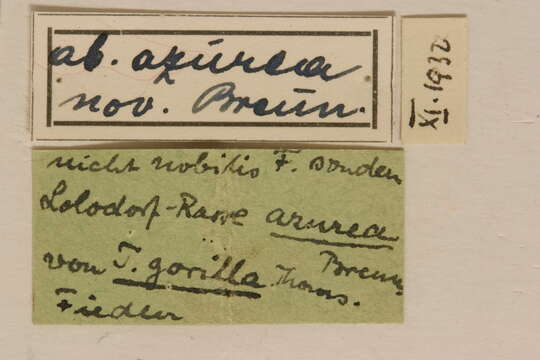 ab. azurea
nov. Breun.
XI. 1932
nicht nobilis F. sondern
Lolodorf-Rasse azurea
Breun.
von T. gorilla Thoms.
Fiedler